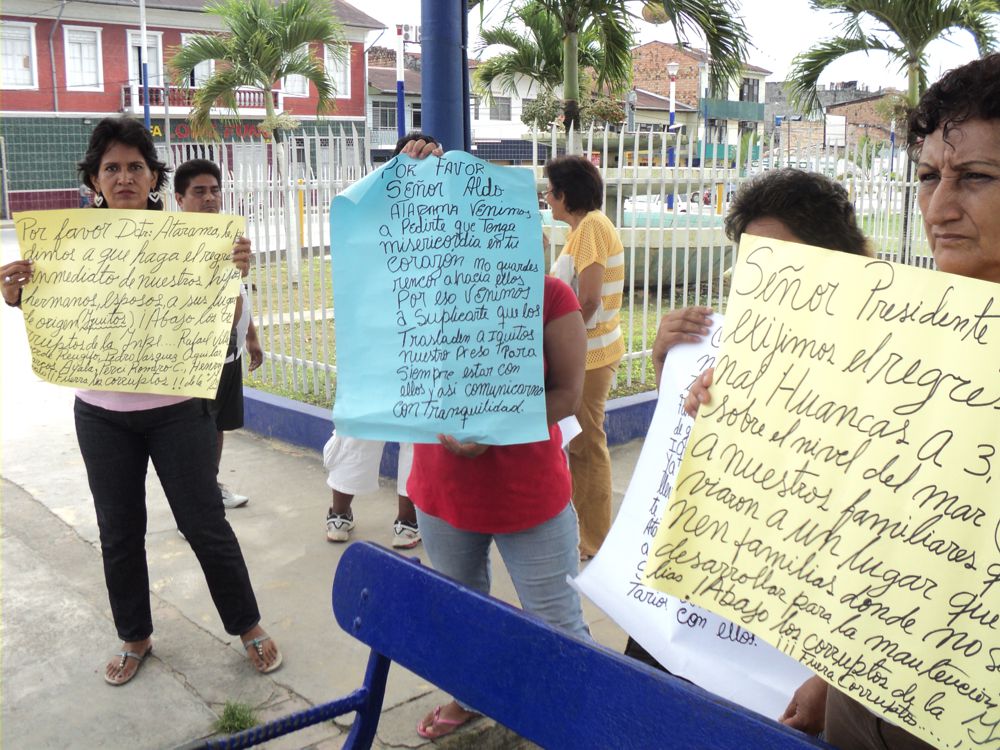 Por favor Dctr: Atarama, le pe
dimos a que haga el regre
inmediato de nuestros hijos
hermanos, esposos a sus lugar
de origen (Iquitos) ! Abajo los
de la INPE!... Rafael
de Rengifo, Pedro Vasquez Aguilar
Ayala, Perci Romero C,
!! Fuera los corruptos !!
POR FAVOR
SEÑOR ALDO
ATARAMA VENIMOS
a Pedirte que Tenga
misericordia en tu
corazon no guardes
rencor a hacia ellos
Por eso Venimos
a Suplicarte que los
Trasladen a Iquitos
nuestro Preso Para
Siempre estar con
ellos y asi comunicarno
con tranquilidad.
Señor Presidente
exijimos el regre
nal Huancas a 3,
sobre el nivel del mar
a nuestros familiares q
viaron a un lugar que
nen familias donde no s
desarrollar para la mantencion
lias !Abajo los corruptos de la
!! Fuera Corruptos....
Tarios
con ellos.